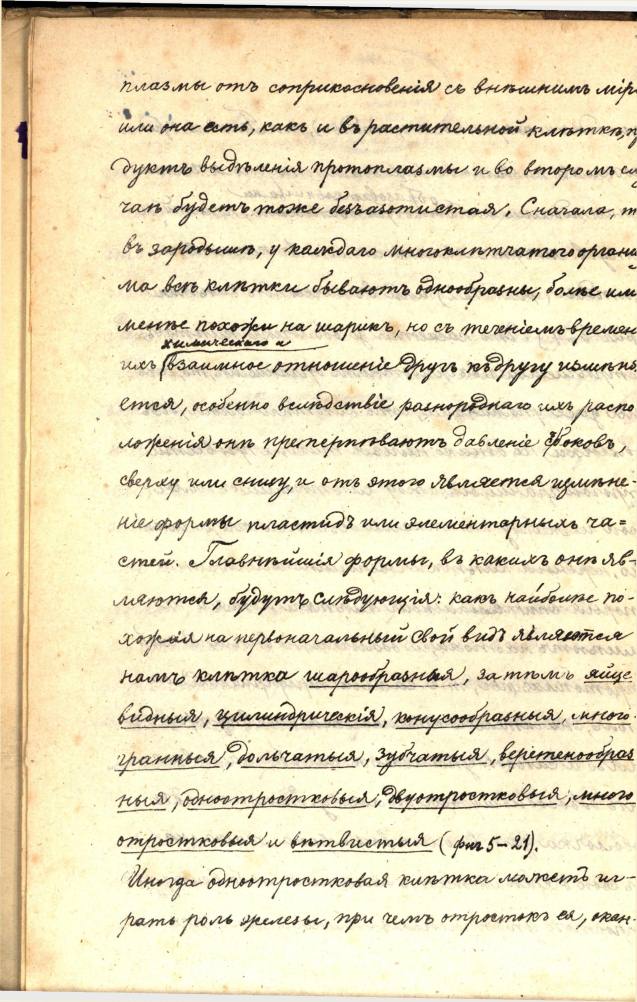 плазмы отъ соприкосновенія съ внѣшнимъ міро
или она есть, какъ и въ растительной клѣткѣ, п
дуктъ выдѣленія протоплазмы и во второмъ слу
чаѣ будетъ тоже безъазотистая. Сначала, т
въ зародышѣ, у каждаго многоклѣтчатого органи
ма всѣ клѣтки бываютъ однообразны, болѣе или
менѣе похожи на шарикъ, но съ теченіемъ времен
химическаго и
ихъ взаимное отношеніе другъ къ другу измѣня
ется, особенно вслѣдствіе разнороднаго ихъ распо
ложенія онѣ претерпѣваютъ давленіе съ боковъ,
сверху или снизу, и отъ этого является измѣне-
ніе формы пластидъ или элементарныхъ ча=
стей. Главнѣйшія формы, въ какихъ онѣ яв-
ляются, будутъ слѣдующія: какъ наиболѣе по-
хожая на первоначальный свой видъ является
намъ клѣтка шарообразная, затѣмъ яйце
видныя, цилиндрическія, конусообразныя, много-
гранныя, дольчатыя, зубчатыя, веретенообраз
ныя, одноотростковыя, двуотростковыя, много
отростковыя и вѣтвистыя (фиг 5-21).
Иногда одноотростковая клѣтка можетъ иг-
рать роль железы, при чемъ отростокъ ея, окан-